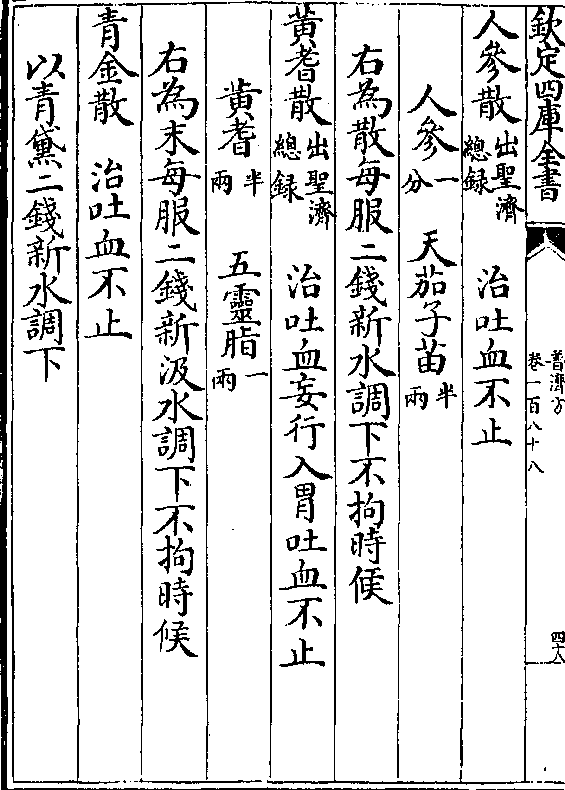 欽定四庫全書
普濟方
卷一百八十八
四十八
人參散出聖濟總録　治吐血不止
人參一分　天茄子苗半兩
右為散每服二錢新水調下不拘時候
黄耆散出聖濟總録　治吐血妄行入胃吐血不止
黄耆半兩　五靈脂一兩
右為末每服二錢新汲水調下不拘時候
青金散　治吐血不止
以青黛二錢新水調下